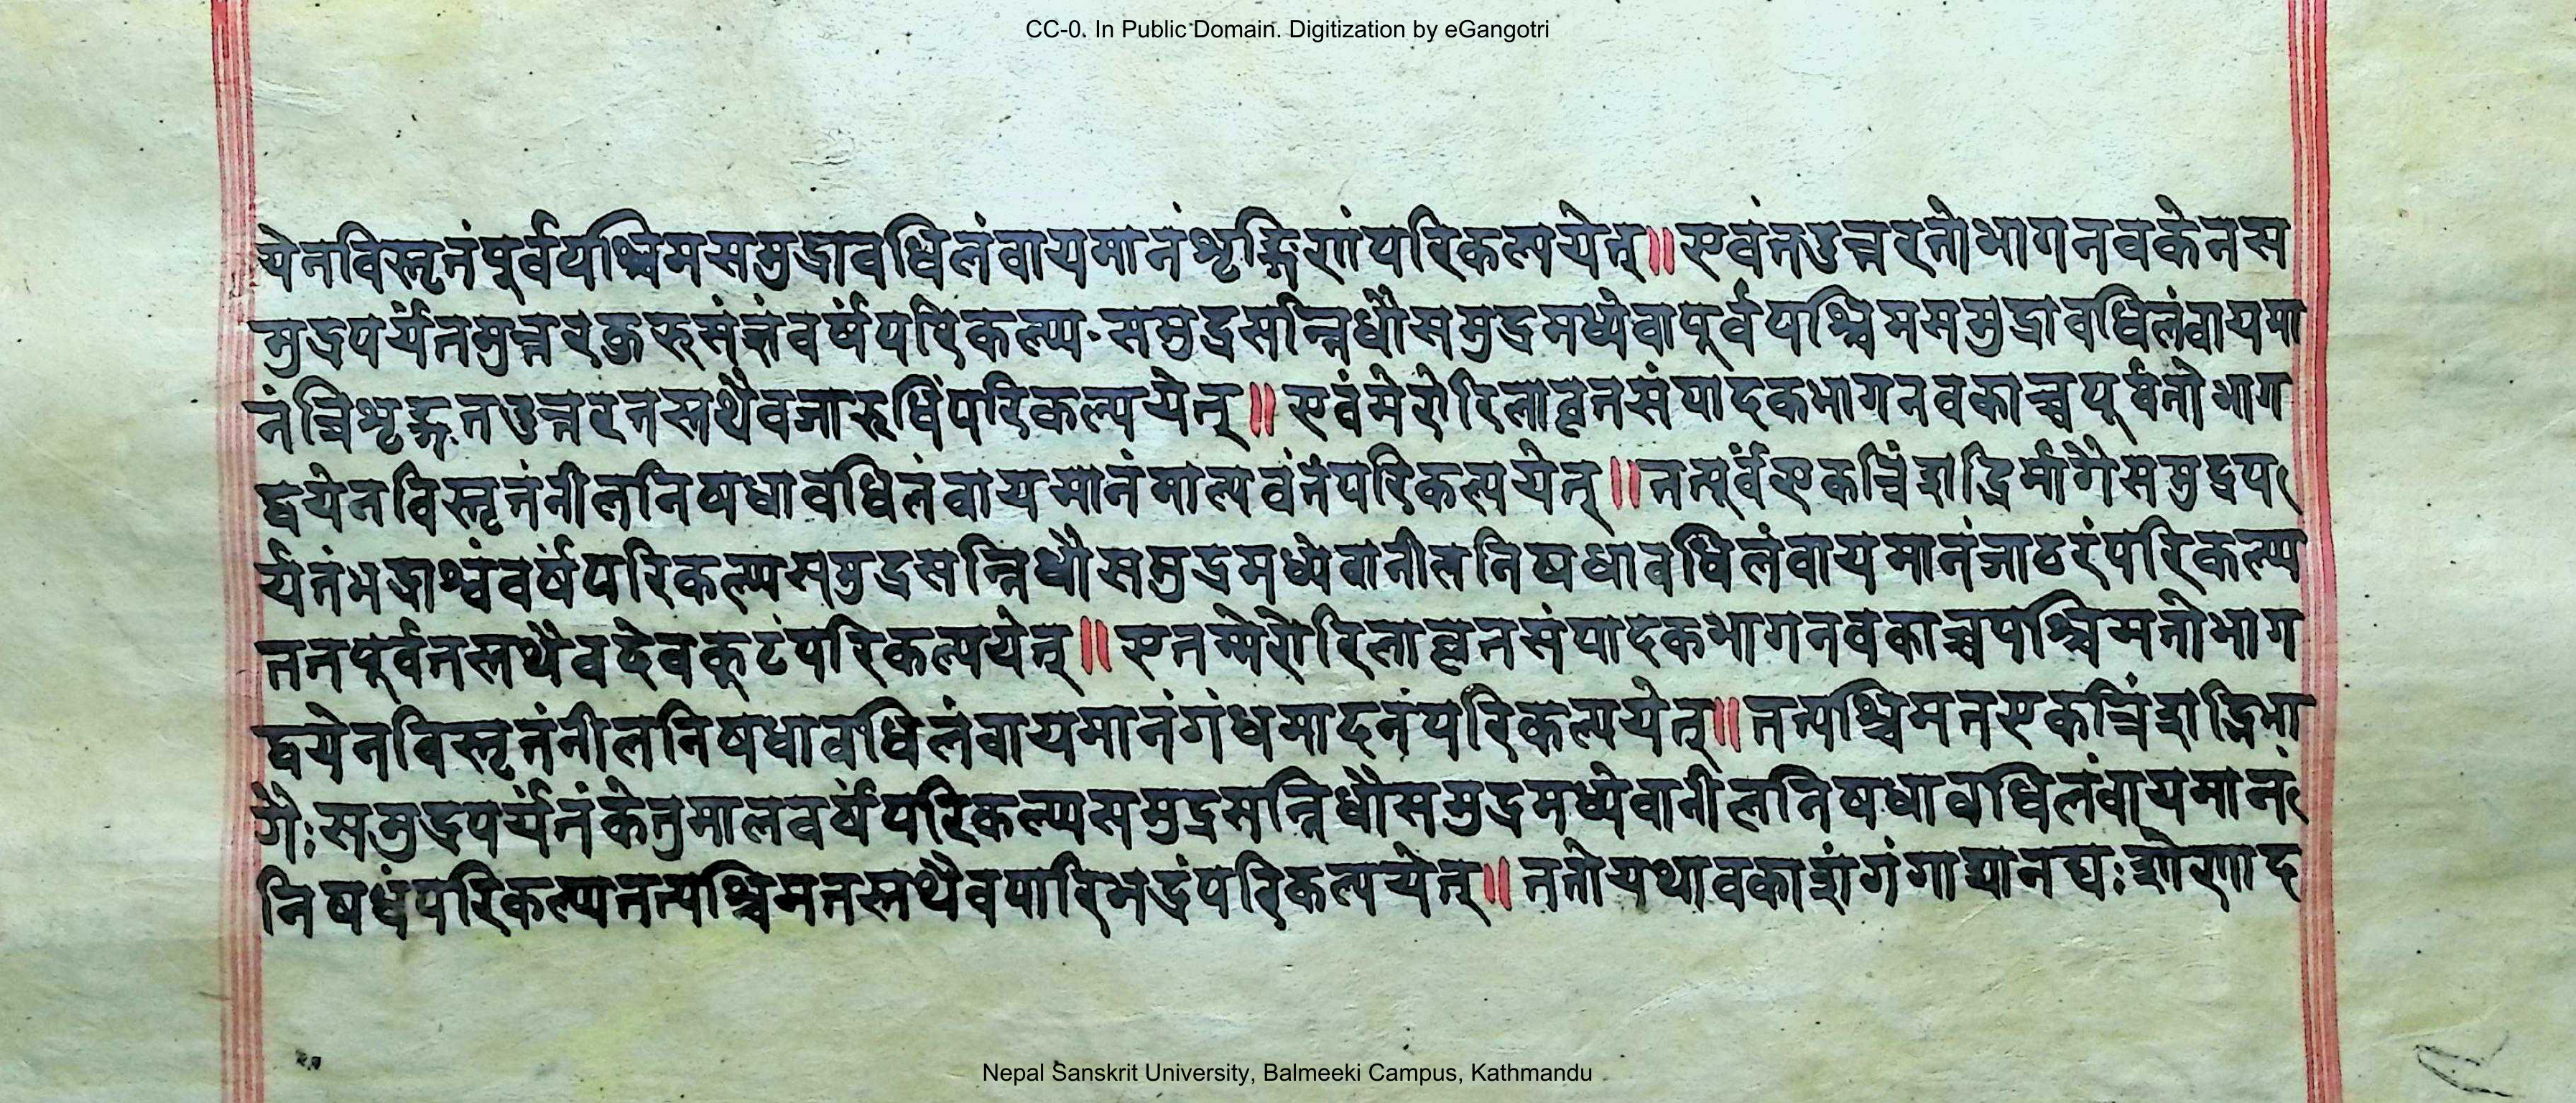 CC-0. In Public Domain. Digitization by eGangotri
येनविस्तृतंपूर्वपश्चिमसमुद्रावधिलंवायमानंशृङ्गिणंपरिकल्पयेत्॥एवंतउत्तरतोभागनवकेनस
मुद्रपर्यंतमुत्तरकुरुसंज्ञंवर्षंपरिकल्प्य॰समुद्रसन्निधौसमुद्रमध्येवापूर्वपश्चिमसमुद्रावधिलंवायमा
नंत्रिशृङ्गंतउत्तरतस्तथैवजारुधिंपरिकल्पयेत्॥एवंमेरोरिलावृतसंपादकभागनवकाच्चपूर्वतोभाग
द्वयेनविस्तृतंनीलनिषधावधिलंवायमानंमाल्यवंतंपरिकल्पयेत्॥तत्पूर्वंएकत्रिंशद्भिर्भागैसमुद्रप
र्यंतंभद्राश्वंवर्षंपरिकल्प्यसमुद्रसन्निधौसमुद्रमध्येवानीलनिषधावधिलंवायमानंजाठरंपरिकल्प्य
ततपूर्वतस्तथैवदेवकूटंपरिकल्पयेत्॥एतम्मेरोरिलावृतसंपादकभागनवकाच्चपश्चिमतोभाग
द्वयेनविस्तृतंनीलनिषधावधिलंवायमानंगंधमादनंपरिकल्पयेत्॥तत्पश्चिमतएकत्रिंशद्भिर्भा
गैः॒समुद्रपर्यंतंकेतुमालवर्षंपरिकल्प्यसमुद्रसन्निधौसमुद्रमध्येवानीलनिषधावधिलंवायमानं
निषधंपरिकल्प्यतत्पश्चिमतस्तथैवपारिभद्रंपरिकल्पयेत्॥ततोयथावकाशंगंगाद्यानद्यःशोणाद
Nepal Sanskrit University, Balmeeki Campus, Kathmandu